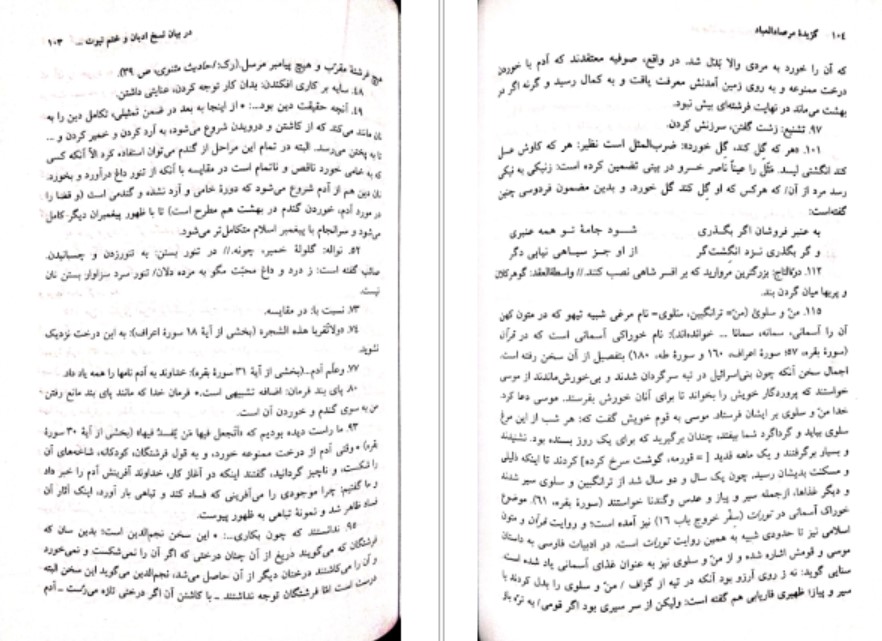 در بیان نسخ ادیان و ختم نبوت ... ۱۰۳
هیچ فرشتهٔ مقرّب و هیچ پیامبر مرسل.(رک: احادیث مثنوی، ص ۳۹).
۴۸. سایه بر کاری افکندن: بدان کار توجه کردن، عنایتی داشتن.
۴۹. آنچه حقیقت دین بود...: • از اینجا به بعد در ضمن تمثیلی، تکامل دین را به
نان مانند می‌کند که از کاشتن و درویدن شروع می‌شود، به آرد کردن و خمیر کردن و ...
تا به پختن می‌رسد. البته در تمام این مراحل از گندم می‌توان استفاده کرد الّا آنکه کسی
که به خامی خورد ناقص و ناتمام است در مقایسه با آنکه از تنور داغ درآورد و بخورد.
نان دین هم از آدم شروع می‌شود که دورهٔ خامی و آرد نشده و گندمی است (و قضا را
در مورد آدم، خوردن گندم در بهشت هم مطرح است) تا با ظهور پیغمبران دیگر کامل
می‌شود و سرانجام با پیغمبر اسلام متکامل‌تر می‌شود.
۵۲. نواله: گلولهٔ خمیر، چونه.// در تنور بستن: به تنورزدن و چسبانیدن.
صائب گفته است: ز درد و داغ محبّت مگو به مرده دلان/ تنور سرد سزاوار بستن نان
نیست.
۷۳. نسبت با: در مقایسه.
۷۴. «ولاتَقربا هذه الشجره (بخشی از آیهٔ ۱۸ سورهٔ اعراف): به این درخت نزدیک
نشوید.
۷۷. وعلّم آدم...(بخشی از آیهٔ ۳۱ سورهٔ بقره): خداوند به آدم نامها را همه یاد داد.
۸۰. پای بند فرمان: اضافه تشبیهی است.• فرمان خدا که مانند پای بند مانع رفتن
من به سوی گندم و خوردن آن است.
۹۳. ما راست دیده بودیم که «أتجعل فیها مَن یُفسدُ فیها» (بخشی از آیهٔ ۳۰ سورهٔ
بقره) • وقتی آدم از درخت ممنوعه خورد، و به قول فرشتگان، کودکانه، شاخه‌های آن
را شکست، و ناچیز گردانید، گفتند اینکه در آغاز کار، خداوند آفرینش آدم را خبر داد
و ما گفتیم: چرا موجودی را می‌آفرینی که فساد کند و تباهی بار آورد، اینک آثار آن
فساد ظاهر شد و نمونهٔ تباهی به ظهور پیوست.
۹۵. ندانستند که چون بکاری...: • این سخن نجم‌الدین است؛ بدین سان که
فرشتگان که می‌گویند دریغ از آن چنان درختی که اگر آن را نمی‌شکست و نمی‌خورد
و آن را می‌کاشتند درختان دیگر از آن حاصل می‌شد، نجم‌الدین می‌گوید این سخن البته
درست است امّا فرشتگان توجه نداشتند ـ با کاشتن آن اگر درختی تازه می‌رُست ـ آدم
۱۰۴ گزیدهٔ مرصادالعباد
که آن را خورد به مردی والا بَدَل شد. در واقع، صوفیه معتقدند که آدم با خوردن
درخت ممنوعه و به روی زمین آمدنش معرفت یافت و به کمال رسید و گرنه اگر در
بهشت می‌ماند در نهایت فرشته‌ای بیش نبود.
۹۷. تشنیع: زشت گفتن، سرزنش کردن.
۱۰۱. «هر که گِل کند، گِل خورد»: ضرب‌المثل است نظیر: هر که کاوش عسل
کند انگشتی لیسد. مَثَل را عیناً ناصر خسرو در بیتی تضمین کرده است: زنیکی به نیکی
رسد مرد از آن/ که هرکس که او گِل کند گل خورد. و بدین مضمون فردوسی چنین
گفته‌است:
به عنبر فروشان اگر بگذری شود جامهٔ تو همه عنبری
و گر بگذری نزد انگِشت‌گر از او جز سیاهی نیابی دگر
۱۱۲. درّةالتاج: بزرگترین مروارید که بر افسر شاهی نصب کنند.// واسطةالعقد: گوهرکلان
و پربها میان گردن بند.
۱۱۵. منّ و سلویٰ (منّ= ترانگبین، سَلوی= نام مرغی شبیه تیهو که در متون کهن
آن را آسمانی، سمانه، سمانا ... خوانده‌اند): نام خوراکی آسمانی است که در قرآن
(سورهٔ بقره، ۵۷؛ سورهٔ اعراف، ۱۶۰ و سورهٔ طه، ۱۸۰) بتفصیل از آن سخن رفته است.
اجمال سخن آنکه چون بنی‌اسرائیل در تیه سرگردان شدند و بی‌خورش‌ماندند از موسی
خواستند که پروردگار خویش را بخواند تا برای آنان خورش بفرستد. موسی دعا کرد.
خدا منّ و سلوی بر ایشان فرستاد. موسی به قوم خویش گفت که: هر شب از این مرغ
سلوی بیاید و گرداگرد شما بیفتد، چندان برگیرید که برای یک روز بسنده بود. نشنیدند
و بسیار برگرفتند و یک ماهه قدید [= قورمه، گوشت سرخ کرده] کردند تا اینکه ذلیلی
و مسکنت بدیشان رسید. چون یک سال و دو سال شد از ترانگبین و سلوی سیر شدند
و دیگر غذاها، ازجمله سیر و پیاز و عدس وگندنا خواستند (سورهٔ بقره، ۶۱). موضوع
خوراک آسمانی در تورات (سِفْر خروج باب ۱۶) نیز آمده است؛ و روایت قرآن و متون
اسلامی نیز تا حدودی شبیه به همین روایت تورات است. در ادبیات فارسی به داستان
موسی و قومش اشاره شده و از منّ و سلوی نیز به عنوان غذای آسمانی یاد شده است.
سنایی گوید: نه ز روی آرزو بود آنکه در تیه از گزاف / منّ و سلوی را بدل کردند با
سیر و پیاز؛ ظهیری فاریابی هم گفته است: ولیکن از سر سیری بود اگر قومی/ به ترّه باز